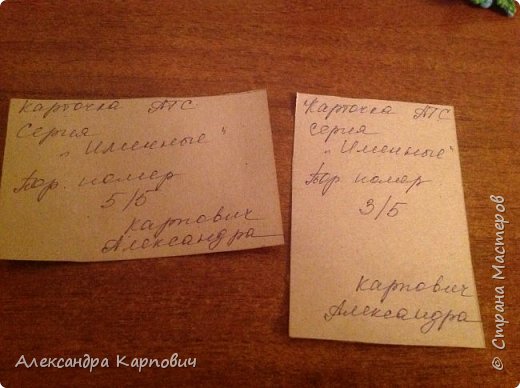 Карточка АТС
Серия
„Именные“
Пор. номер
5/5
Карпович
Александра
Карточка АТС
Серия
„Именные“
Пор. номер
3/5
Карпович
Александра
Александра Карпович
© Страна Мастеров